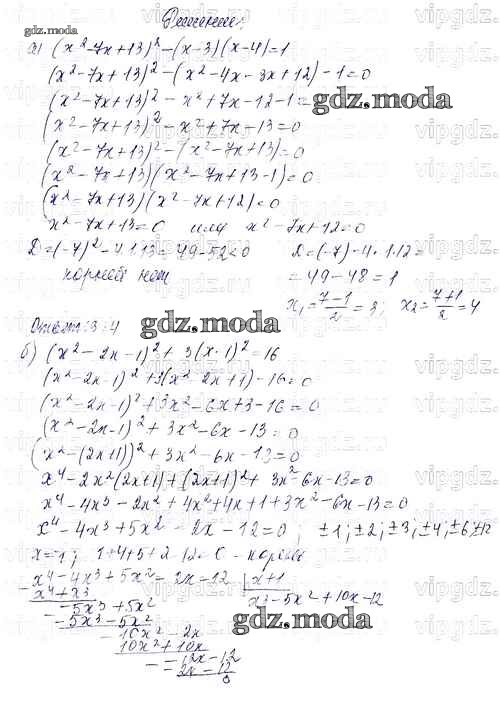 Решение:
gdz.moda
а) (x²-7x+13)²-(x-3)(x-4)=1
(x²-7x+13)²-(x²-4x-3x+12)-1=0
(x²-7x+13)²-x²+7x-12-1=
gdz.moda
(x²-7x+13)²-x²+7x-13=0
(x²-7x+13)²-(x²-7x+13)=0
(x²-7x+13)(x²-7x+13-1)=0
(x²-7x+13)(x²-7x+12)=0
x²-7x+13=0 или x²-7x+12=0
D=(-7)²-4·1·13=49-52<0 D=(-7)-4·1·12=
корней нет =49-48=1
x₁=(7-1)/2=3; x₂=(7+1)/2=4
Ответ: 3; 4
gdz.moda
б) (x²-2x-1)²+3(x-1)²=16
(x²-2x-1)²+3(x²-2x+1)-16=0
(x²-2x-1)²+3x²-6x+3-16=0
(x²-2x-1)²+3x²-6x-13=0
(x²-(2x+1))²+3x²-6x-13=0
x⁴-2x²(2x+1)+(2x+1)²+3x²-6x-13=0
x⁴-4x³-2x²+4x²+4x+1+3x²-6x-13=0
x⁴-4x³+5x²-2x-12=0; ±1;±2;±3;±4;±6;±12
x=-1; 1+4+5+2-12=0 - корень
x⁴-4x³+5x²-2x-12 | x+1
x⁴+x³ x³-5x²+10x-12
-5x³+5x²
-5x³-5x²
gdz.moda
10x²-2x
10x²+10x
-12x-12
0
vipgdz.ru